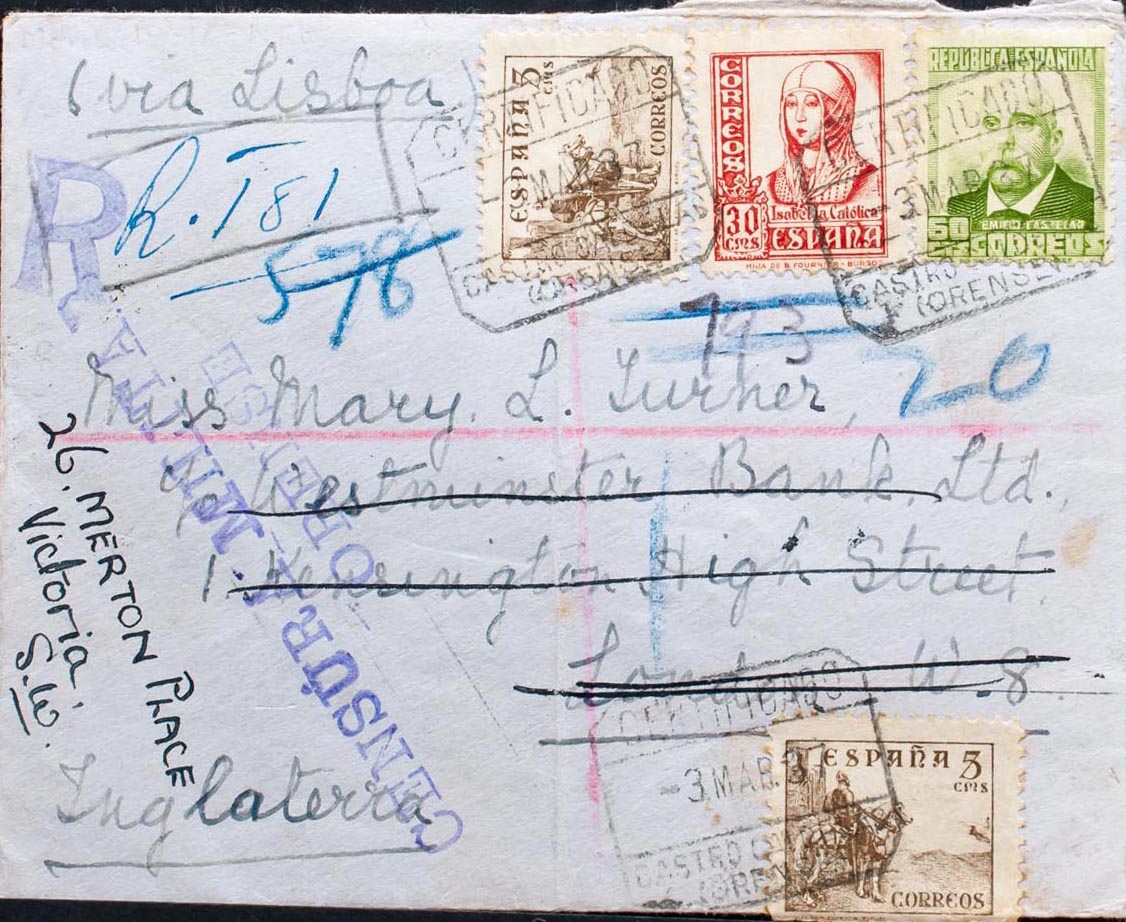 (via Lisboa)
R
R. T 81
578
ESPAÑA
5 cms
CORREOS
CORREOS
30 CMS
Isabel la Católica
ESPAÑA
HIJA DE B. FOURNIER - BURGOS
REPUBLICA ESPAÑOLA
EMILIO CASTELAR
60 CORREOS
CERTIFICADO
CERTIFICADO
-3 MAR. 37
CASTRO
(ORENSE)
793
20
Miss Mary. L. Turner,
c/o Westminster Bank Ltd.,
1. Kensington High Street.
London W. 8.
Inglaterra
26. MERTON PLACE
Victoria.
S.W.
CENSÚRA MILITAR
ORENSE
CERTIFICADO
-3 MAR. 37
CASTRO
(ORENSE)
ESPAÑA 5
cms
CORREOS